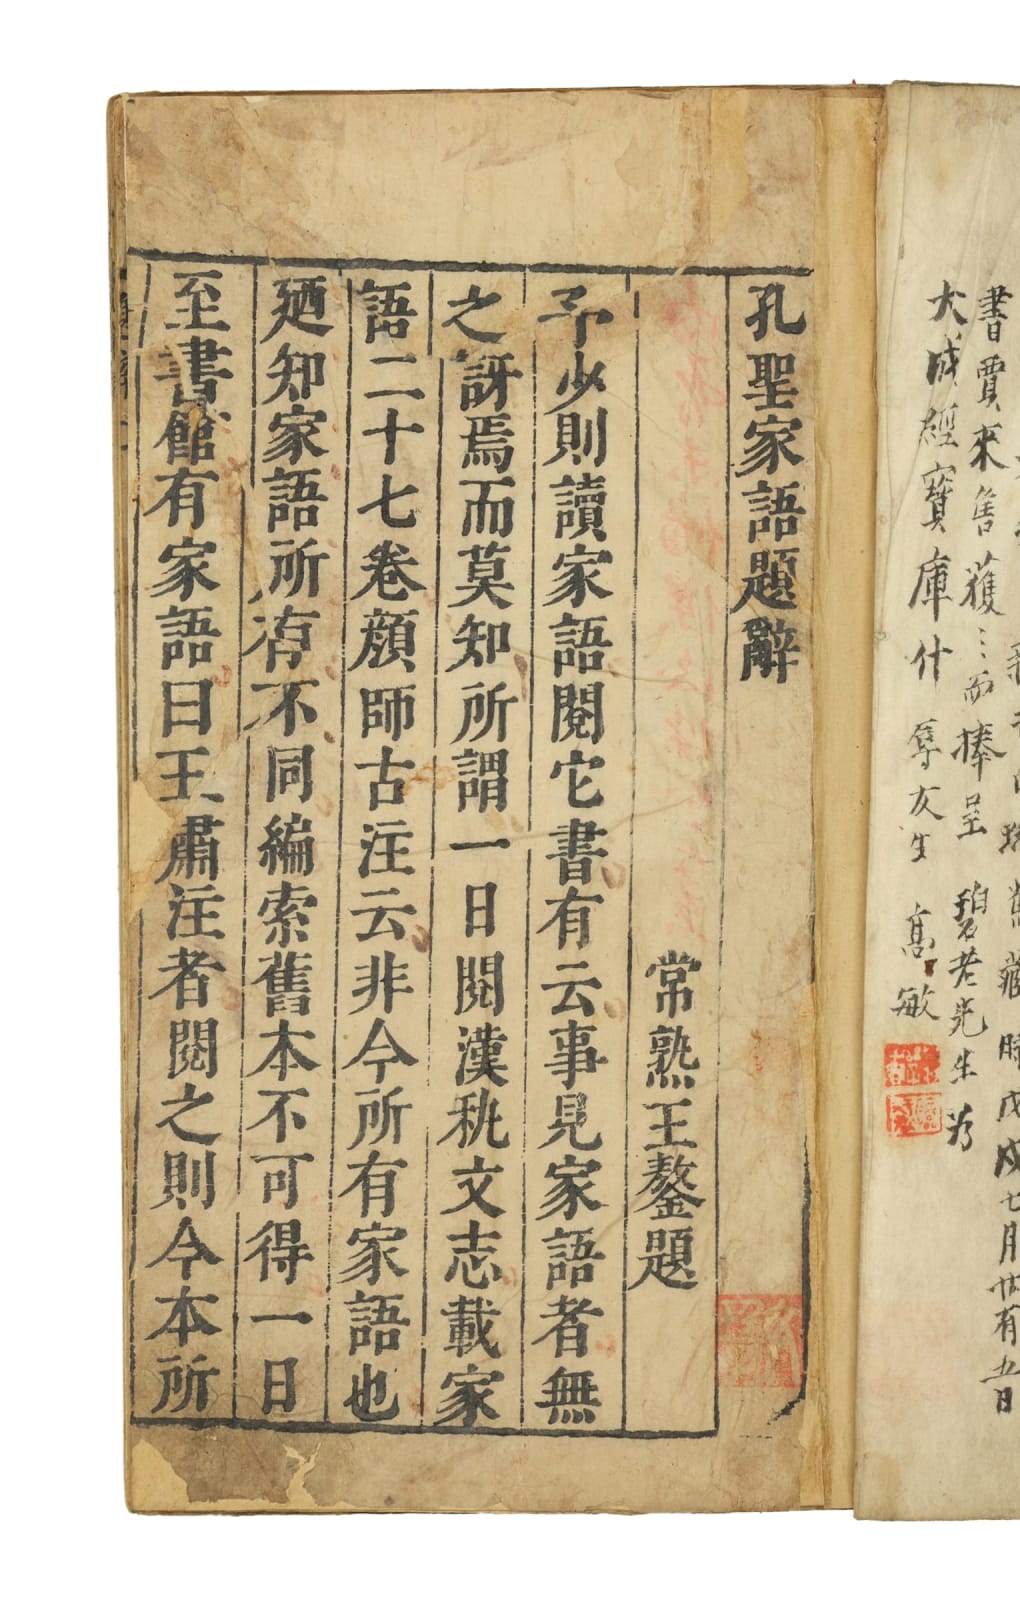 舊藏時戊戌七月廿有五日
書賈來售獲〻而捧呈 碧老先生為
大成經寶庫什 辱友生 高敏
孔聖家語題辭
常熟王鏊題
予少則讀家語閱它書有云事見家語者無
之訝焉而莫知所謂一日閱漢秇文志載家
語二十七卷顔師古注云非今所有家語也
廼知家語所有不同編索舊本不可得一日
至書館有家語曰王肅注者閱之則今本所